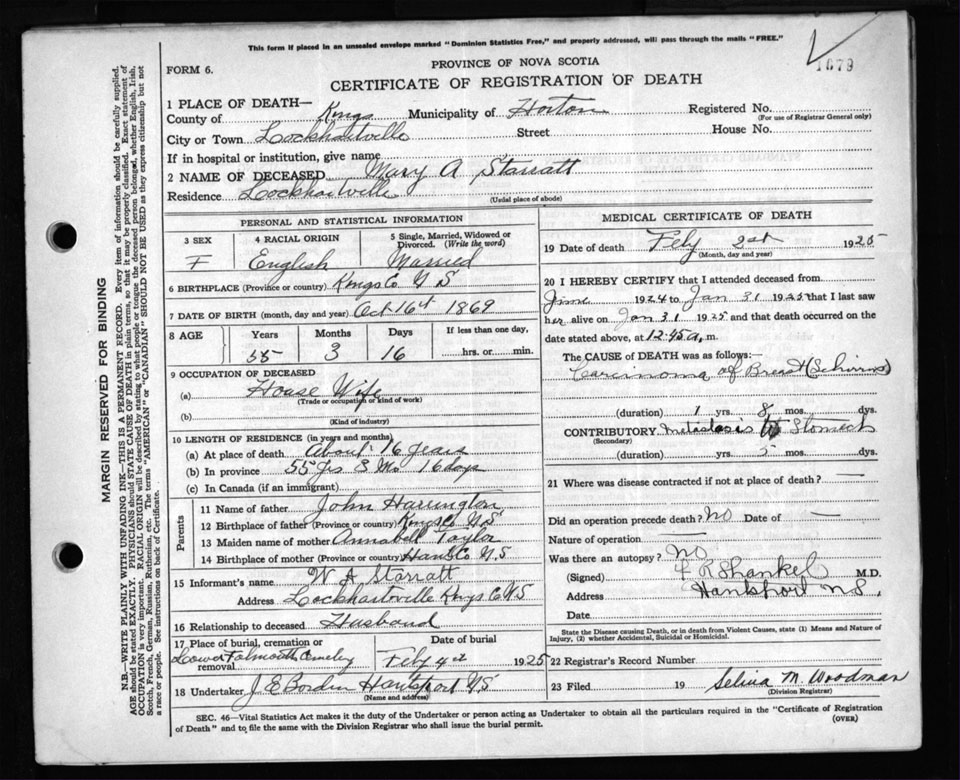 This form if placed in an unsealed envelope marked "Dominion Statistics Free," and properly addressed, will pass through the mails "FREE."
1079
FORM 6.
PROVINCE OF NOVA SCOTIA
CERTIFICATE OF REGISTRATION OF DEATH
1 PLACE OF DEATH—
County of Kings Municipality of Horton Registered No.
(For use of Registrar General only)
City or Town Lockhartville Street House No.
If in hospital or institution, give name
2 NAME OF DECEASED Mary A Starratt
Residence Lockhartville
(Usual place of abode)
PERSONAL AND STATISTICAL INFORMATION
3 SEX 4 RACIAL ORIGIN 5 Single, Married, Widowed or Divorced. (Write the word)
F English Married
6 BIRTHPLACE (Province or country) Kings Co N S
7 DATE OF BIRTH (month, day and year) Oct 16th 1869
8 AGE Years Months Days If less than one day,
55 3 16 hrs. or min.
9 OCCUPATION OF DECEASED
(a) House Wife
(Trade or occupation or kind of work)
(b)
(Kind of industry)
10 LENGTH OF RESIDENCE (in years and months)
(a) At place of death About 16 years
(b) In province 55 yrs 3 Mo 16 days
(c) In Canada (if an immigrant)
Parents
11 Name of father John Harrington
12 Birthplace of father (Province or country) Kings Co N S
13 Maiden name of mother Annabell Taylor
14 Birthplace of mother (Province or country) Hants Co N.S
15 Informant's name W A Starratt
Address Lockhartville Kings Co N S
16 Relationship to deceased Husband
17 Place of burial, cremation or removal Date of burial
Lower Falmouth Cemetery Feby 4th 1925
18 Undertaker J E Borden Hantsport N S
(Name and address)
MEDICAL CERTIFICATE OF DEATH
19 Date of death Feby 2st 1925
(Month, day and year)
20 I HEREBY CERTIFY that I attended deceased from
June 1924 to Jan 31 1925 that I last saw
her alive on Jan 31 1925 and that death occurred on the
date stated above, at 12.45 a, m.
The CAUSE of DEATH was as follows:
Carcinoma of Breast (Schirrus)
(duration) 1 yrs. 8 mos. dys.
CONTRIBUTORY metastases to Stomach
(Secondary)
(duration) yrs. 5 mos. dys.
21 Where was disease contracted if not at place of death?
Did an operation precede death? No Date of
Nature of operation
Was there an autopsy? No
(Signed) R Shankel M.D.
Address Hantsport N.S.
Date
State the Disease causing Death, or in death from Violent Causes, state (1) Means and Nature of
Injury, (2) whether Accidental, Suicidal or Homicidal.
22 Registrar's Record Number
23 Filed 19 Selina M. Woodman
(Division Registrar)
SEC. 46—Vital Statistics Act makes it the duty of the Undertaker or person acting as Undertaker to obtain all the particulars required in the "Certificate of Registration
of Death" and to file the same with the Division Registrar who shall issue the burial permit. (OVER)
MARGIN RESERVED FOR BINDING
N.B.—WRITE PLAINLY WITH UNFADING INK—THIS IS A PERMANENT RECORD. Every item of information should be carefully supplied.
AGE should be stated EXACTLY. PHYSICIANS should STATE CAUSE OF DEATH in plain terms, so that it may be properly classified. Exact statement of
OCCUPATION is very important. RACIAL ORIGIN will be described by stating to what people or tongue the deceased person belonged, whether English, Irish,
Scotch, French, German, Russian, Ruthenian, etc. The terms "AMERICAN" or "CANADIAN" SHOULD NOT BE USED as they express citizenship but not
a race or people. See instructions on back of Certificate.